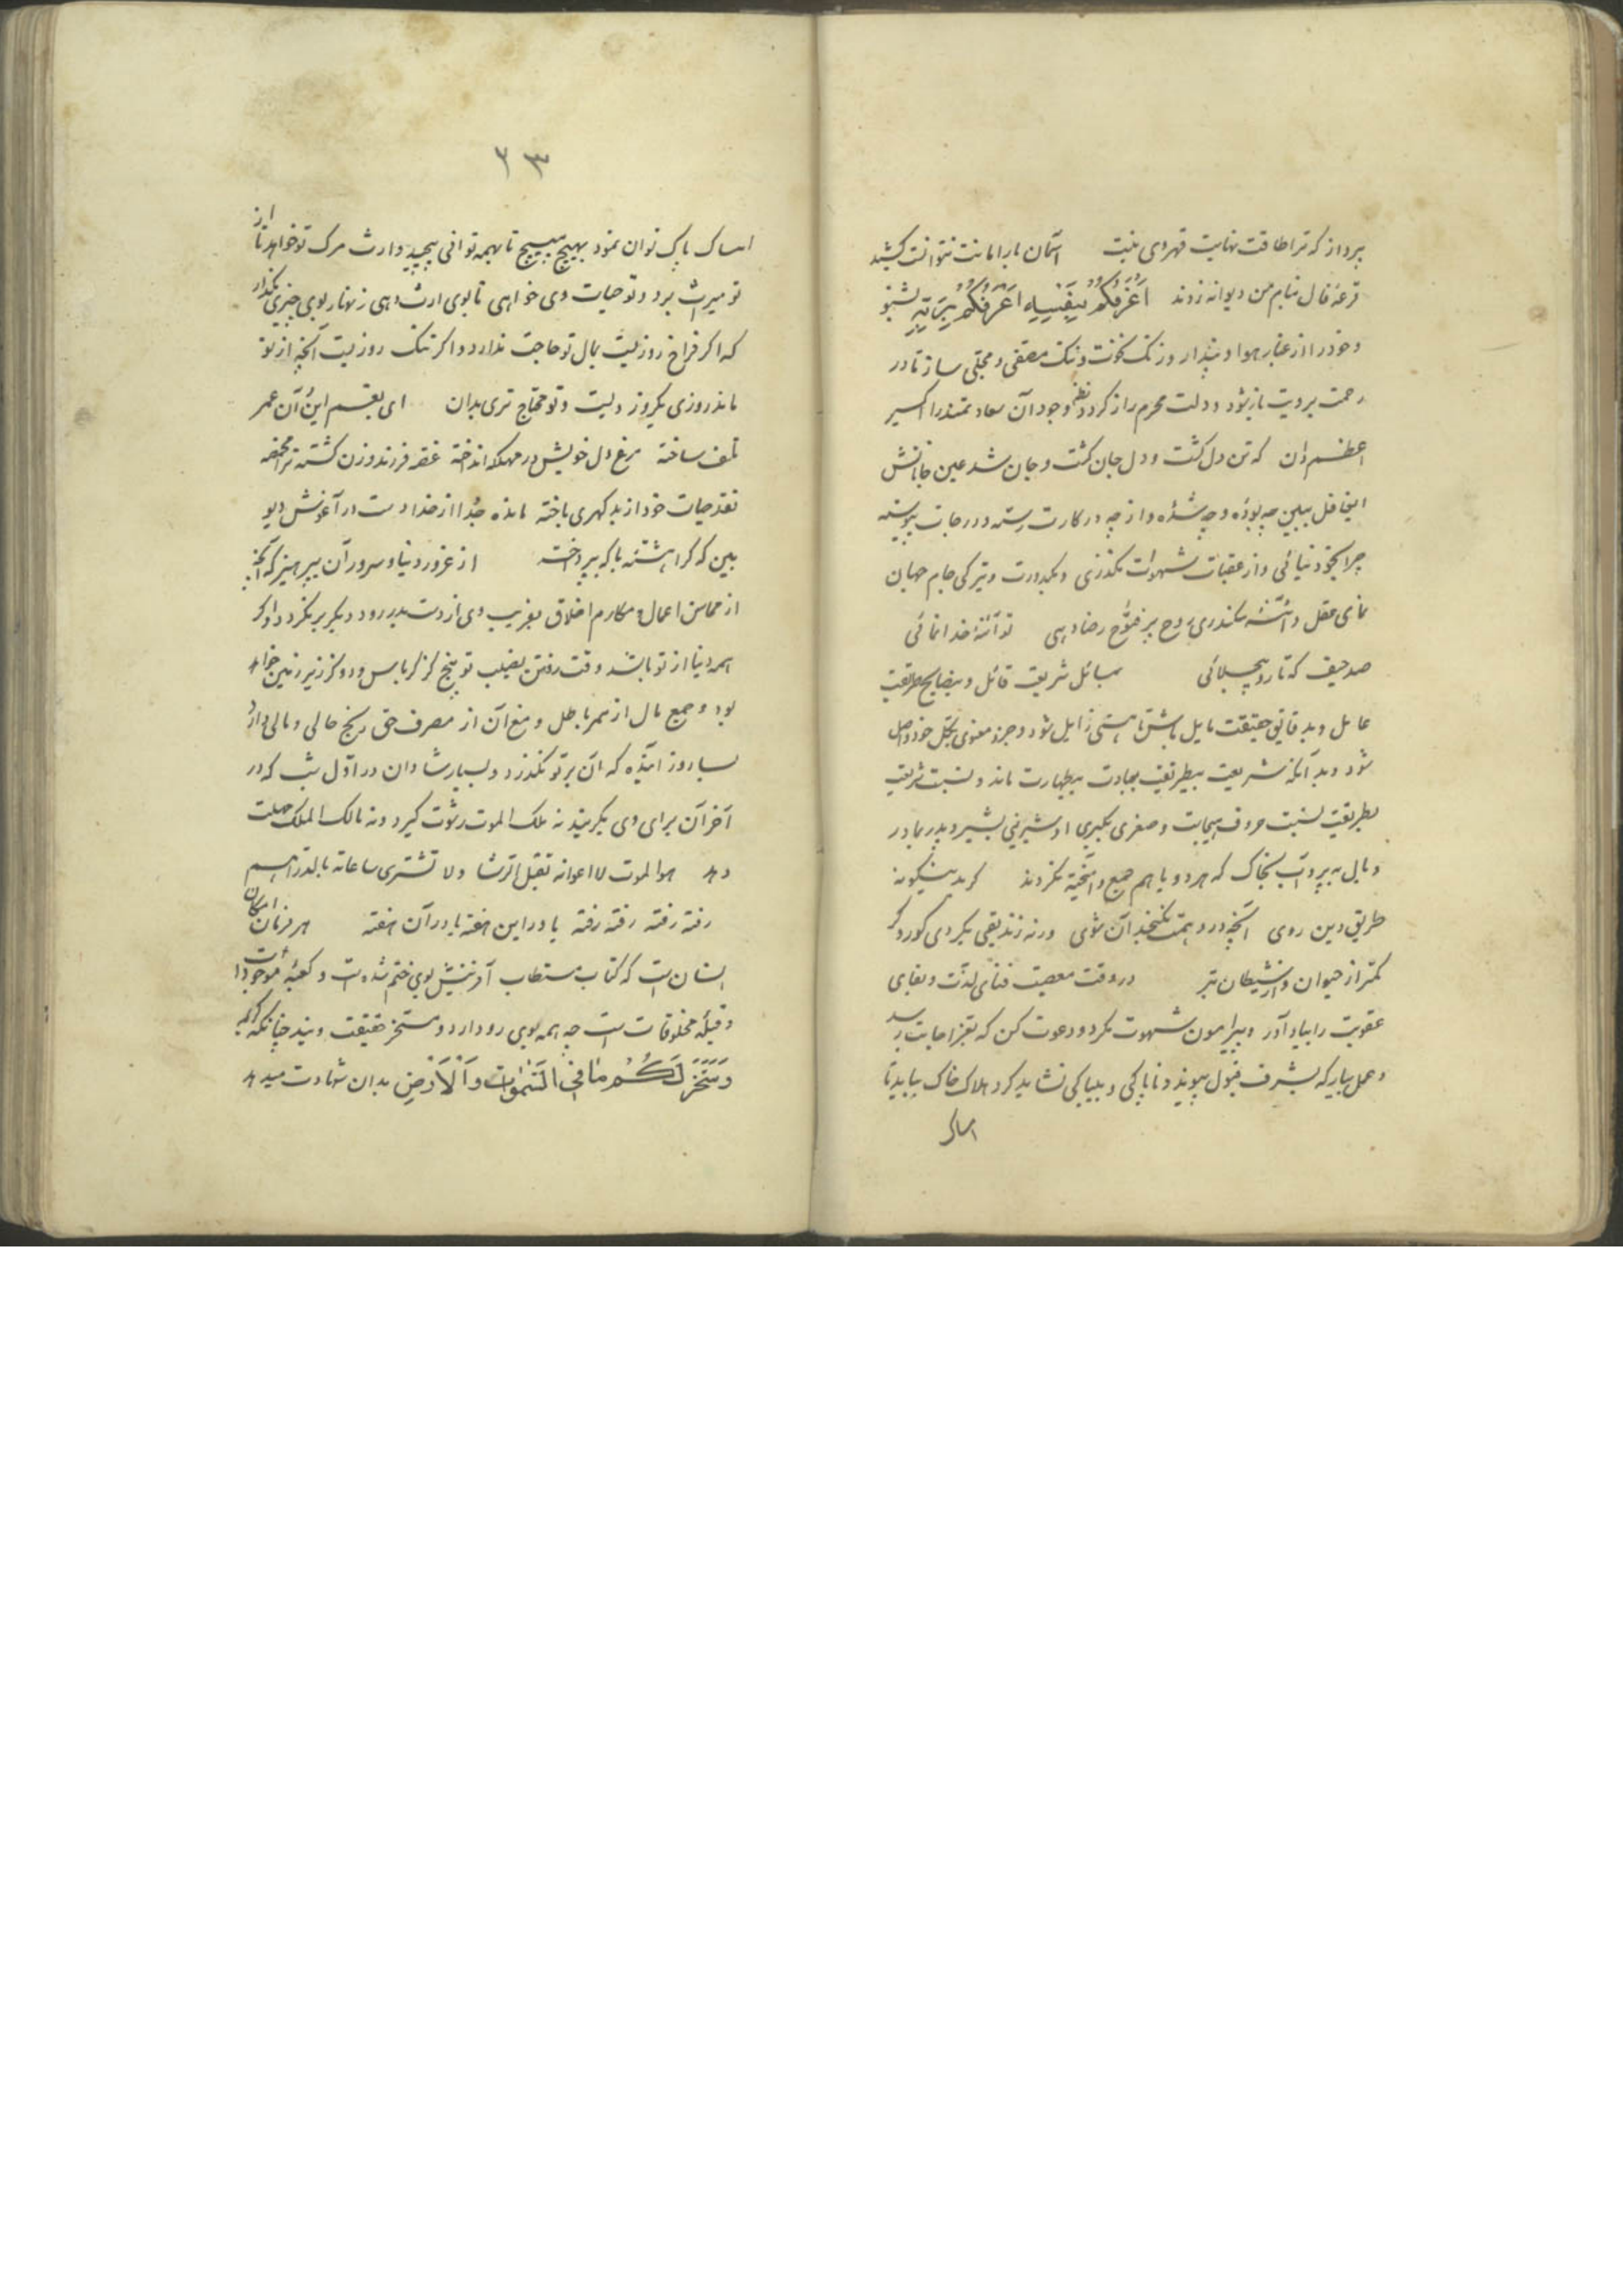 پرداز که ترا طاقت نهایت قهر وی نیست آسمان بار امانت نتوانست کشید
قرعهٔ فال بنام من دیوانه زدند اَعْرَفُکُمْ بِنَفْسِهِ اَعْرَفُکُمْ بِرَبِّهِ بشنو
و خود را از غبار هوا و پندار و زنک نخوت و ننک مصفی و مجلی ساز تا در
رحمت برویت باز شود و دلت محرم راز کردد نظم وجود آن سعادتمند را اکسیر
اعظم دان که تن دل کشت و دل جان کشت و جان شد عین جانانش
ای غافل ببین چه بودهٔ و چه شدهٔ و از چه درکات رسته و درجات پیوسته
چرا بخود نیائی و از عقبات شهوات نکذری و بکدورت و تیرکی جام جهان
نمای عقل و آئینهٔ سکندری روح بر فتوح رضا دهی تو آئنهٔ خدا نمائی
صد حیف که تا رو بچه بلائی بمسائل شریعت قائل و بنصایح طریقت
عامل و بدقایق حقیقت مایل باش تا هستی زایل شود و جزو معنوی بکل خود واصل
شود و بدآنکه شریعت بیطریقت بعبادت بیطهارت ماند و نسبت شریعت
بطریقت نسبت حروف هیجاست و صغری بکبری و شیرینی بشیر و پدر بمادر
و بال به پر و آب بخاک که هر دو با هم جمع و آمیخته نکردند کر بدینکونه
طریق دین روی آنچه در وهمت نکنجد آن شوی ورنه زندیقی بکردی کور و کر
کمتر از حیوان و از شیطان بتر در وقت معصیت فنای لذت و بقای
عقوبت را بیاد آور و پیرامون شهوت مکرد و دعوت کن که بعز اجابت رسد
و عمل بیار که بشرف قبول پیوندد و ناپاکی و بیباکی نشاید کرد هلاک خاک بباید تا
امساک
۲۳
امساک پاک توان نمود بهیچ مپیچ تا بهمه توانی پیچید وارث مرک تو خواهد تا از
تو میراث برد و تو حیات وی خواهی تا بوی ارث دهی زنهار بوی چیزی بکذار
که اکر فراخ روزیست بمال تو حاجت ندارد و اکر تنک روزیست آنچه از تو
ماند روزی یکروز ویست و تو محتاج تری بدان ای بغم این و آن عمر
تلف ساخته مرغ دل خویش در مهلکه انداخته غصه فرزند و زن کشته ترا مخمصه
نقد حیات خود از بد کهری باخته مانده جدا از خدا دست در آغوش دیو
ببین که کرا هشتهٔ با که پرداخته از غرور دنیا و سرور آن بپرهیز که آنچه
از محاسن اعمال و مکارم اخلاق بفریب وی از دست بدر رود دیکر بر نکردد و اکر
همه دنیا از تو باشد وقت رفتن نصیب تو پنج کز کرباس و دو کز زیر زمین خواهد
بود و جمع مال از ممر باطل و منع آن از مصرف حق رنج حالی و مالی دارد
بسا روز آینده که آن بر تو نکذرد و بسیار شادان در اول شب که در
آخر آن برای وی بکریند نه ملک الموت رشوت کیرد و نه مالک الملک مهلت
دهد هو الموت لا اعوانه تقبل الرشا ولا تشتری ساعاته بالدراهم
رفته رفته رفته رفته یا در این هفته یا در آن هفته هر فرمان امکان
انسان است که کتاب مستطاب آفرینش بوی ختم شده است و کعبهٔ موجودات
و قبلهٔ مخلوقات است چه همه بوی رو دارد و مسخر حقیقت ویند چنانکه کریمه
وَسَخَّرَ لَکُمْ مٰا فِی السَّمٰوٰاتِ وَالْاَرْضِ بدان شهادت میدهد